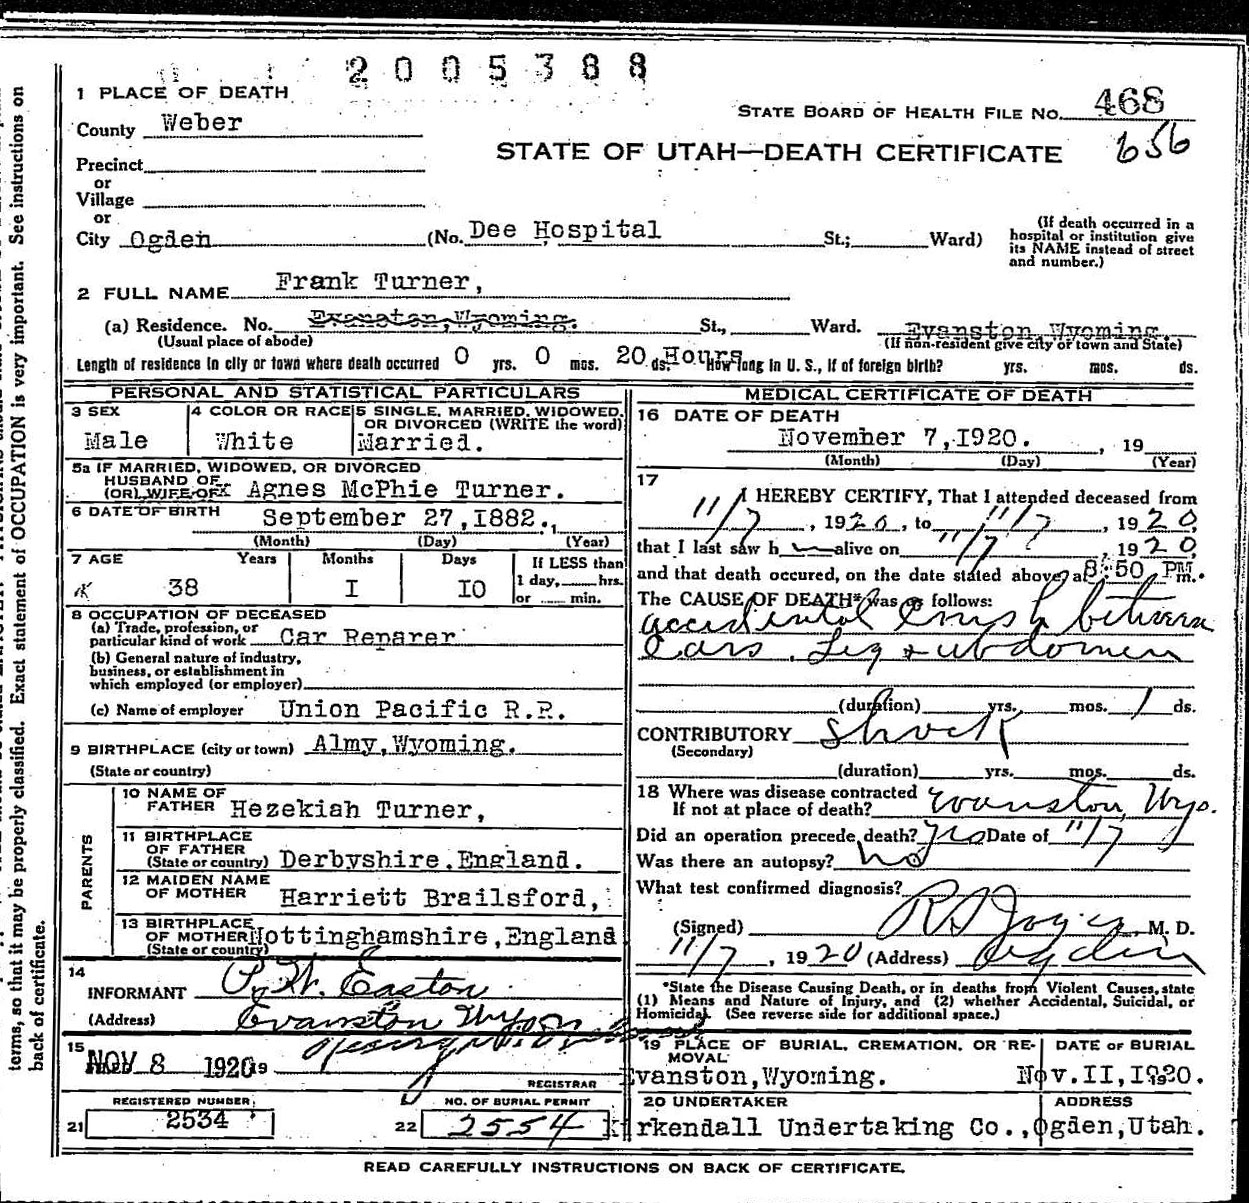 2005388
1 PLACE OF DEATH
STATE BOARD OF HEALTH FILE No. 468
County Weber
656
STATE OF UTAH—DEATH CERTIFICATE
Precinct
or
Village
or
City Ogden (No. Dee Hospital St.; Ward)
(If death occurred in a
hospital or institution give
its NAME instead of street
and number.)
2 FULL NAME Frank Turner,
(a) Residence. No. Evanston, Wyoming. St., Ward. Evanston, Wyoming.
(Usual place of abode) (If non-resident give city or town and State)
Length of residence in city or town where death occurred 0 yrs. 0 mos. 20 ds. Hours How long in U. S., if of foreign birth? yrs. mos. ds.
PERSONAL AND STATISTICAL PARTICULARS
3 SEX
Male
4 COLOR OR RACE
White
5 SINGLE, MARRIED, WIDOWED,
OR DIVORCED (WRITE the word)
Married.
5a IF MARRIED, WIDOWED, OR DIVORCED
HUSBAND OF
(OR) WIFE OF Agnes McPhie Turner.
6 DATE OF BIRTH September 27, I882.
(Month) (Day) (Year)
7 AGE Years Months Days
38 I IO
If LESS than
1 day, hrs.
or min.
8 OCCUPATION OF DECEASED
(a) Trade, profession, or
particular kind of work Car Reparer
(b) General nature of industry,
business, or establishment in
which employed (or employer)
(c) Name of employer Union Pacific R.R.
9 BIRTHPLACE (city or town) Almy, Wyoming.
(State or country)
PARENTS
10 NAME OF
FATHER Hezekiah Turner,
11 BIRTHPLACE
OF FATHER
(State or country) Derbyshire, England.
12 MAIDEN NAME
OF MOTHER Harriett Brailsford,
13 BIRTHPLACE
OF MOTHER Nottinghamshire, England
(State or country)
14
INFORMANT P. W. Easton
(Address) Evanston Wyo
15
NOV 8 1920 19
REGISTRAR
REGISTERED NUMBER
21 2534
NO. OF BURIAL PERMIT
22 2554
MEDICAL CERTIFICATE OF DEATH
16 DATE OF DEATH
November 7, I920. , 19
(Month) (Day) (Year)
17
I HEREBY CERTIFY, That I attended deceased from
11/7, 1920, to 11/7, 1920,
that I last saw h alive on 11/7, 1920,
and that death occured, on the date stated above, at 8:50 PM m.
The CAUSE OF DEATH* was as follows:
accidental crush between
Cars. Leg + abdomen
(duration) yrs. mos. 1 ds.
CONTRIBUTORY Shock
(Secondary)
(duration) yrs. mos. ds.
18 Where was disease contracted
If not at place of death? Evanston, Wyo.
Did an operation precede death? yes Date of 11/7
Was there an autopsy? no
What test confirmed diagnosis?
(Signed) M. D.
11/7, 1920 (Address) Ogden
*State the Disease Causing Death, or in deaths from Violent Causes, state
(1) Means and Nature of Injury, and (2) whether Accidental, Suicidal, or
Homicidal. (See reverse side for additional space.)
19 PLACE OF BURIAL, CREMATION, OR RE-
MOVAL
Evanston, Wyoming.
DATE OF BURIAL
Nov. II, I920. 19
20 UNDERTAKER
Kirkendall Undertaking Co.,
ADDRESS
Ogden, Utah.
READ CAREFULLY INSTRUCTIONS ON BACK OF CERTIFICATE.
terms, so that it may be properly classified. Exact statement of OCCUPATION is very important. See instructions on
back of certificate.